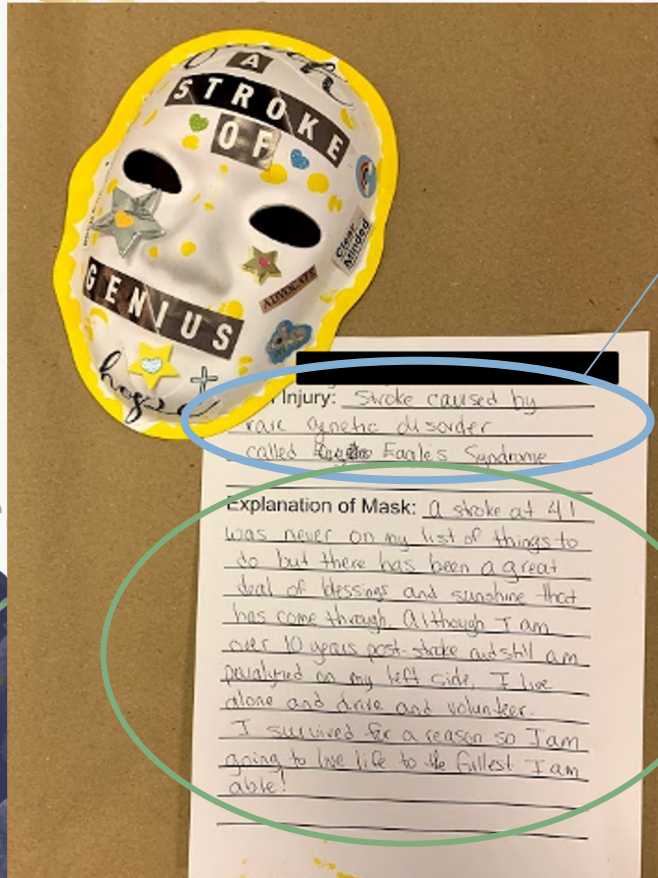 A
STROKE
OF
Clear
Minded
ADVOCATE
GENIUS
hope
Injury: Stroke caused by
rare genetic disorder
called Eagle's Syndrome
Explanation of Mask: A stroke at 41
was never on my list of things to
do but there has been a great
deal of blessings and sunshine that
has come through. Although I am
over 10 years post-stroke and still am
paralyzed on my left side, I live
alone and drive and volunteer.
I survived for a reason so I am
going to live life to the fullest I am
able!